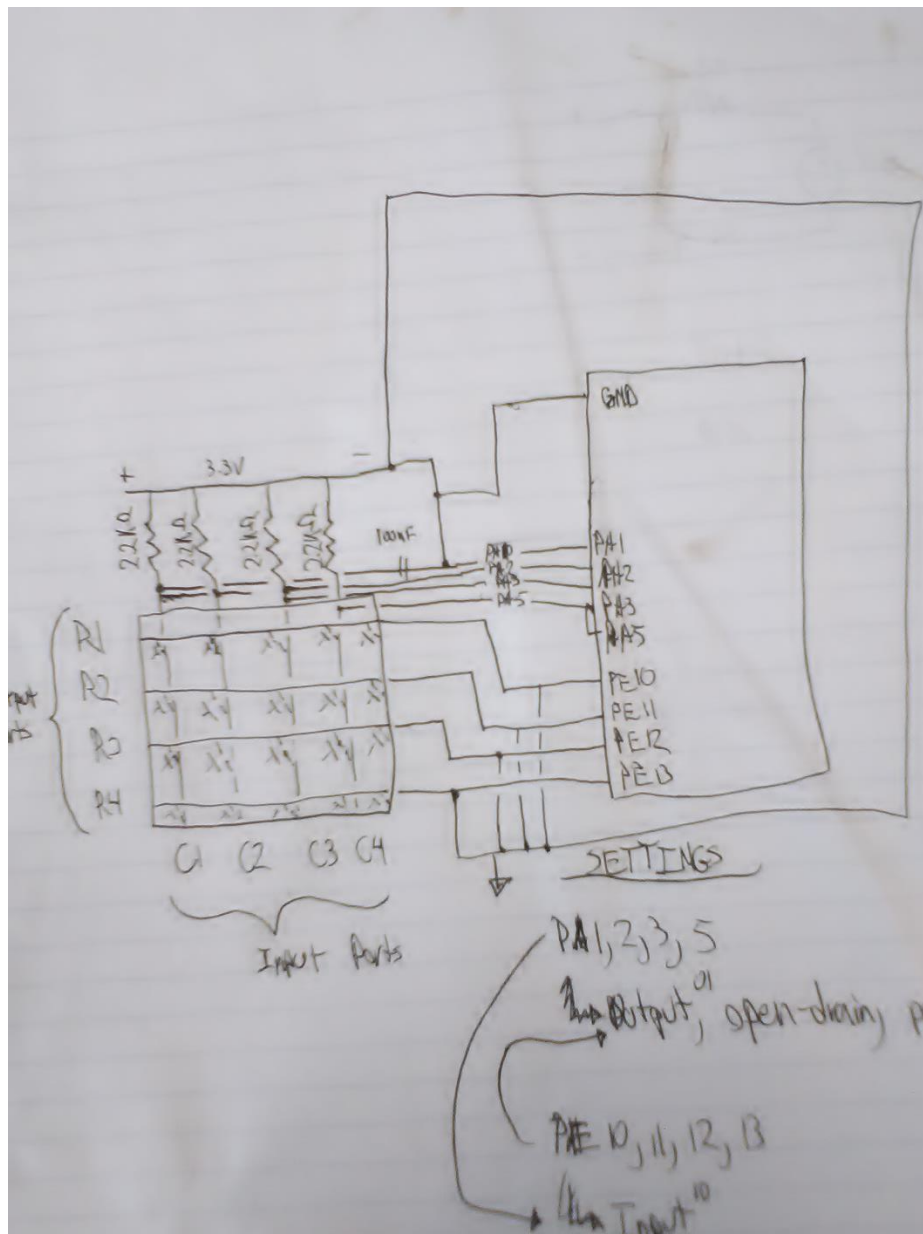 GND
+ 3.3V -
22KΩ 22KΩ 22KΩ 22KΩ
100nF
PA1
PA2
PA3
PA5
PA2
PA3
PA5
R1
R2
R3
R4
PE10
PE11
PE12
PE13
C1 C2 C3 C4
Input Ports
SETTINGS
PA1, 2, 3, 5
Output, 01 open-drain,
PE 10, 11, 12, 13
Input 10